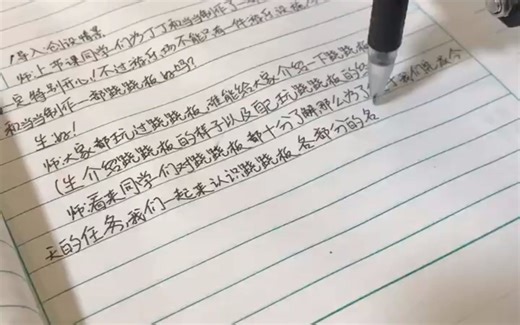 1导入、创设情景
师:上节课同学们为了丁丁和当当制作了一
是特别开心!不过游乐场不能只有一件游乐设施
和当当制作一部跷跷板好吗?
生:好!
师:大家都玩过跷跷板,谁能给大家介绍一下跷跷板
(生介绍跷跷板的样子以及玩跷跷板的
师:看来同学们对跷跷板都十分了解,那么为了
天的任务,我们一起来认识跷跷板各部分的名